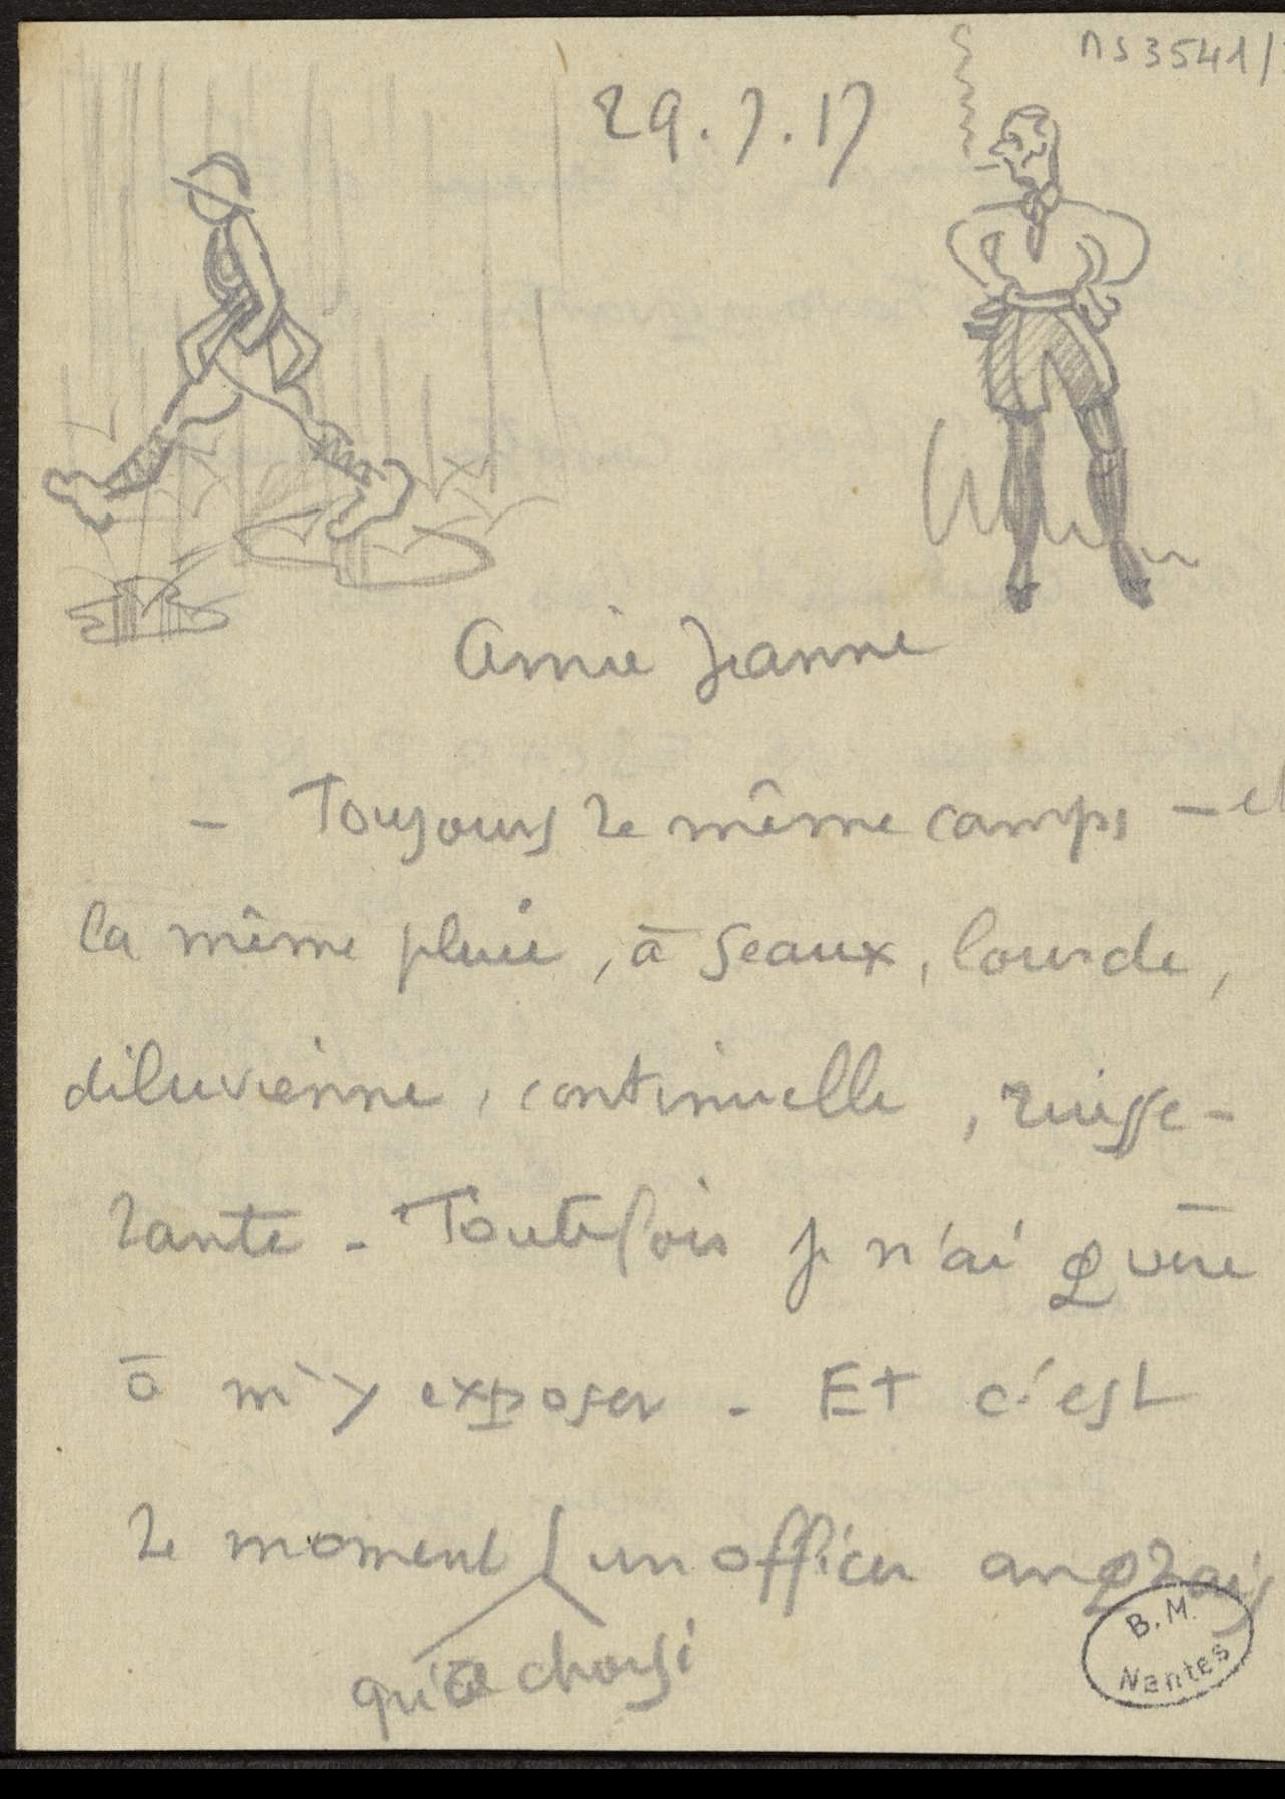 ms 3541/
29.7.17
Amie Jeanne
- Toujours le même camps - et
la même pluie, à seaux, lourde,
diluvienne, continuelle, ruisse-
lante - Toutefois je n'ai guère
à m'y exposer - Et c'est
le moment un officier anglais
qu'a choisi
B.M.
Nantes